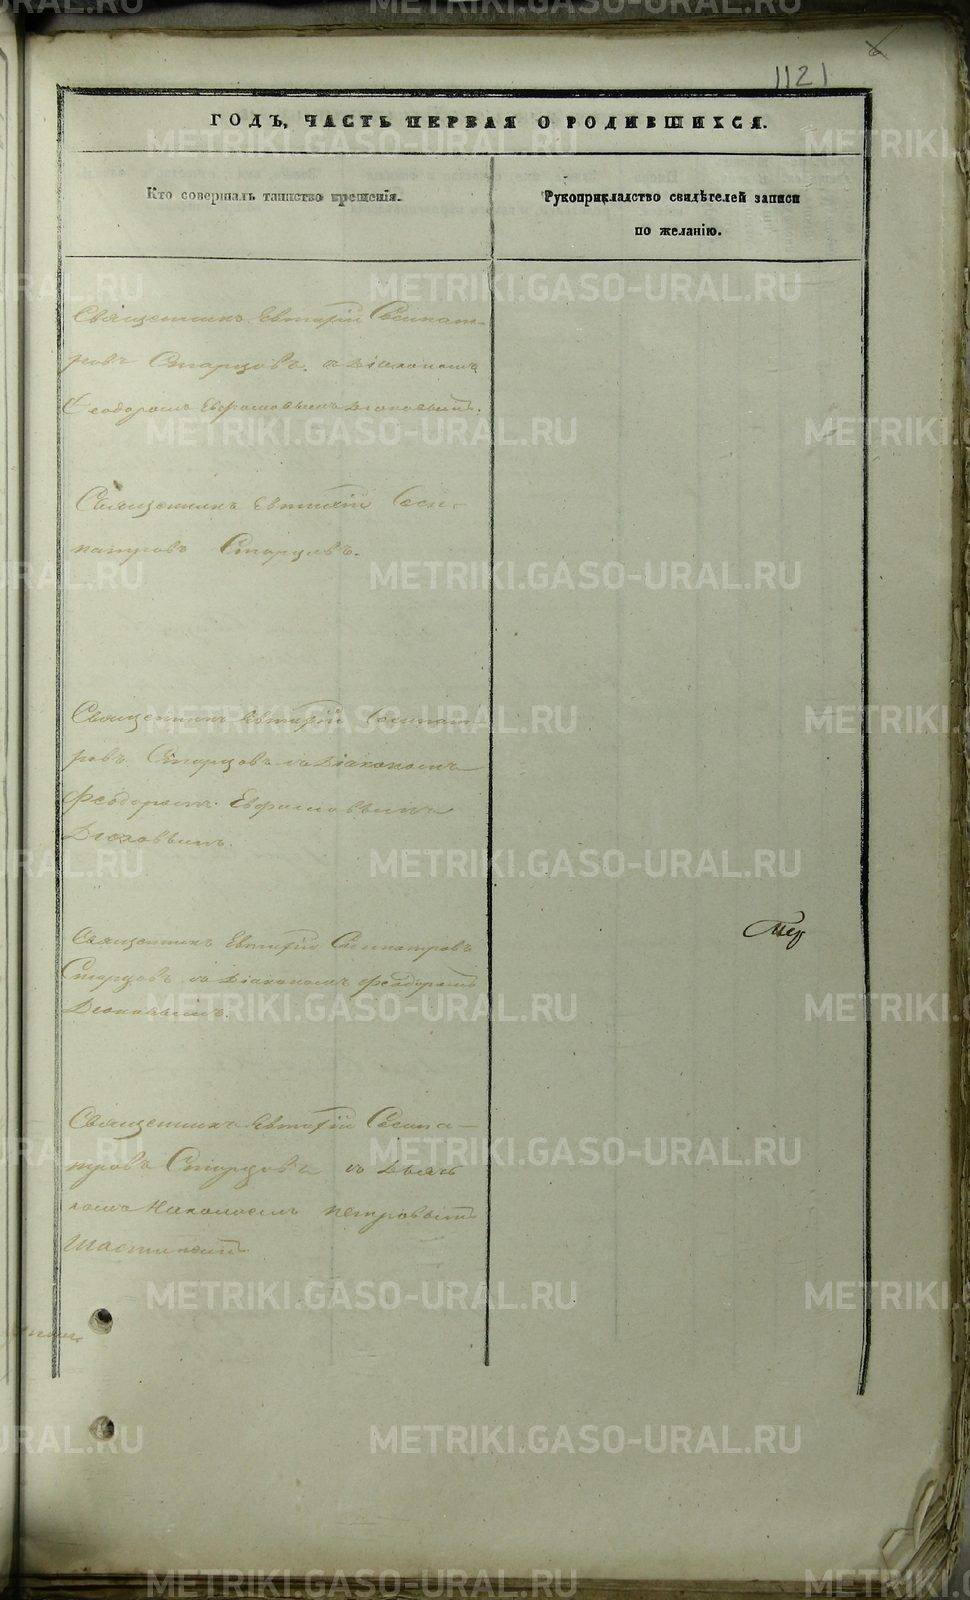 1121
ГОДЪ, ЧАСТЬ ПЕРВАЯ О РОДИВШИХСЯ.
Кто совершалъ таинство крещенія.
Рукоприкладство свидѣтелей записи
по желанію.
Священникъ Евтихій Сосипат-
ровъ Старцовъ съ Діакономъ
Ѳеодоромъ
Священникъ Евтихій Соси-
патровъ Старцовъ.
Священникъ Евтихій Сосипат-
ровъ Старцовъ съ Діакономъ
Феодоромъ
Священникъ Евтихій Сосипатровъ
Старцовъ съ Діакономъ Феодоромъ
Священникъ Евтихій Сосипа-
тровъ Старцовъ съ Дьяч-
комъ Николаемъ Петровымъ
METRIKI.GASO-URAL.RU